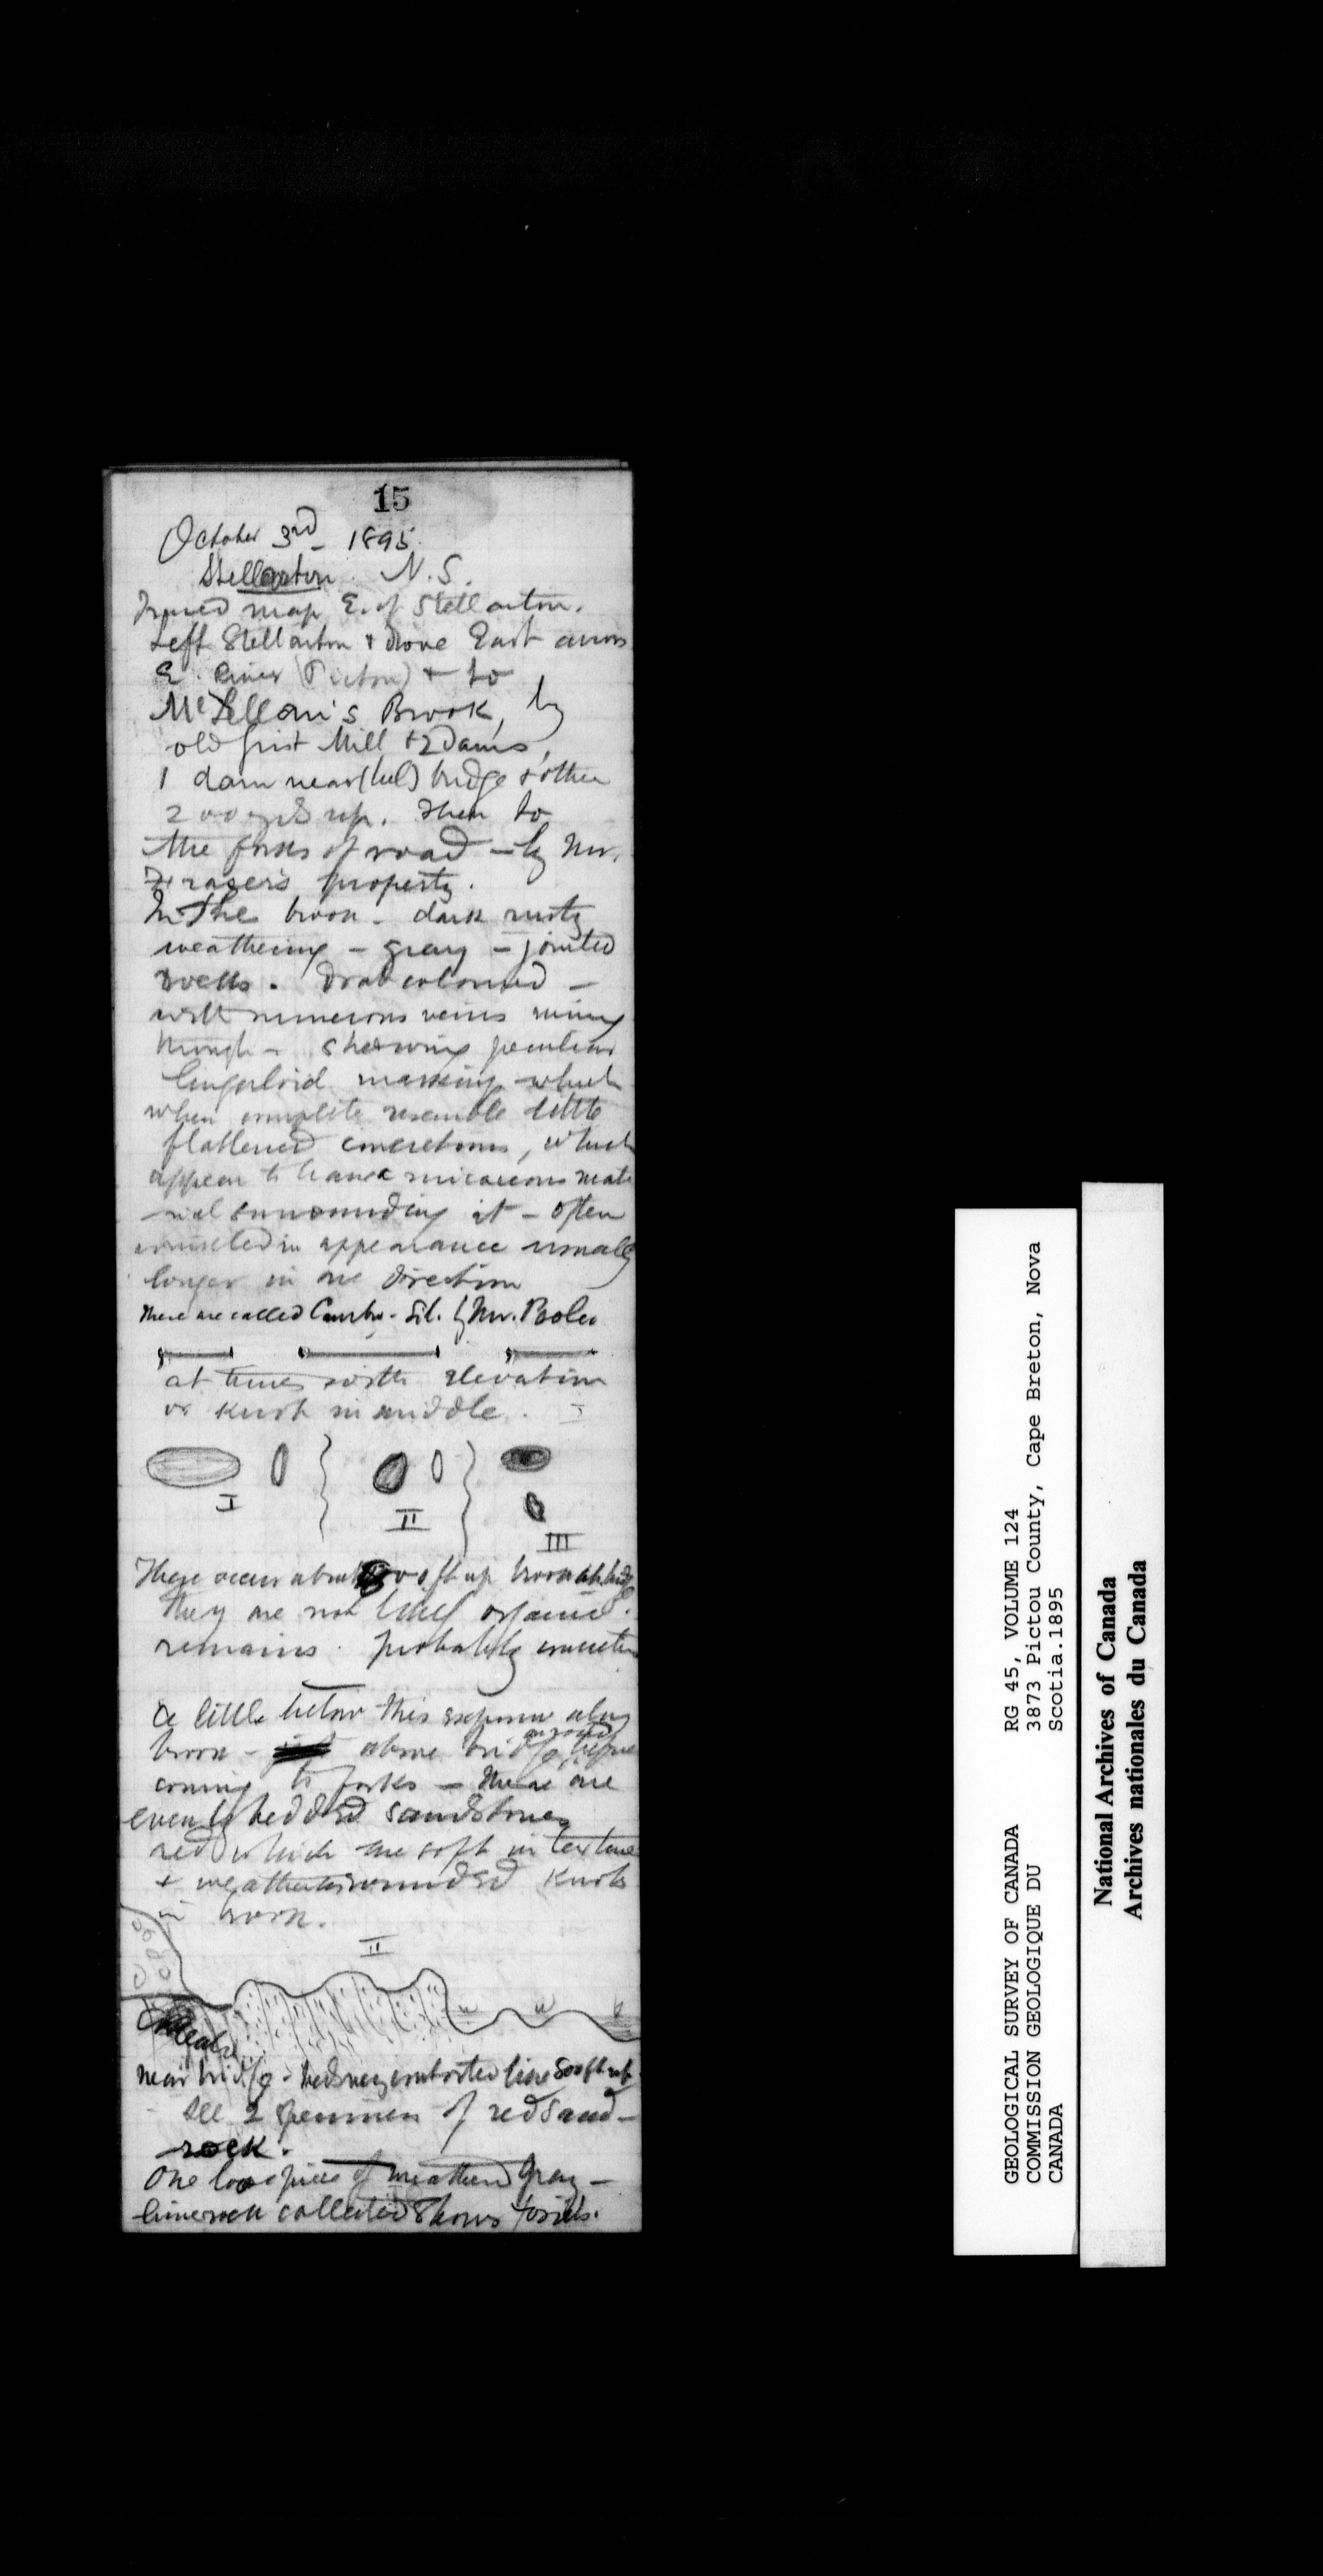 15
October 3rd - 1895.
Stellarton. N.S.
map E. of Stellarton.
Left Stellarton & drove East across
E. River (Pictou) & to
McLellan's Brook, by
old Grist Mill & 2 Dams,
1 dam near (bel) bridge & other
200 yds up. Then to
the forks of road - by Mr.
Fraser's property.
In the brook - dark rusty
weathering - gray - jointed
rocks. Drab coloured -
with numerous veins runing
through - shewing peculiar
marking which
when complete resemble little
flattened concretions, which
appear to have a micaceous mate
-rial surrounding it - often
in appearance usually
longer in one direction
These are called Cambro-Sil. by Mr.
at times with elevation
or knob in middle. I
I
II
III
These occur about ft up brook
They are not likely organic
remains. probably concretions
A little below this exposure along
brook - above bridge on road, before
coming to forks - there are
evenly bedded sandstones
red which are soft in texture
& weather rounded knobs
in brook.
II
near bridge - beds very contorted
See 2 specimens of red sand-
rock.
One loose piece of weathered gray -
limerock collected shows fossils.
GEOLOGICAL SURVEY OF CANADA
COMMISSION GEOLOGIQUE DU
CANADA
RG 45, VOLUME 124
3873 Pictou County, Cape Breton, Nova
Scotia.1895
National Archives of Canada
Archives nationales du Canada